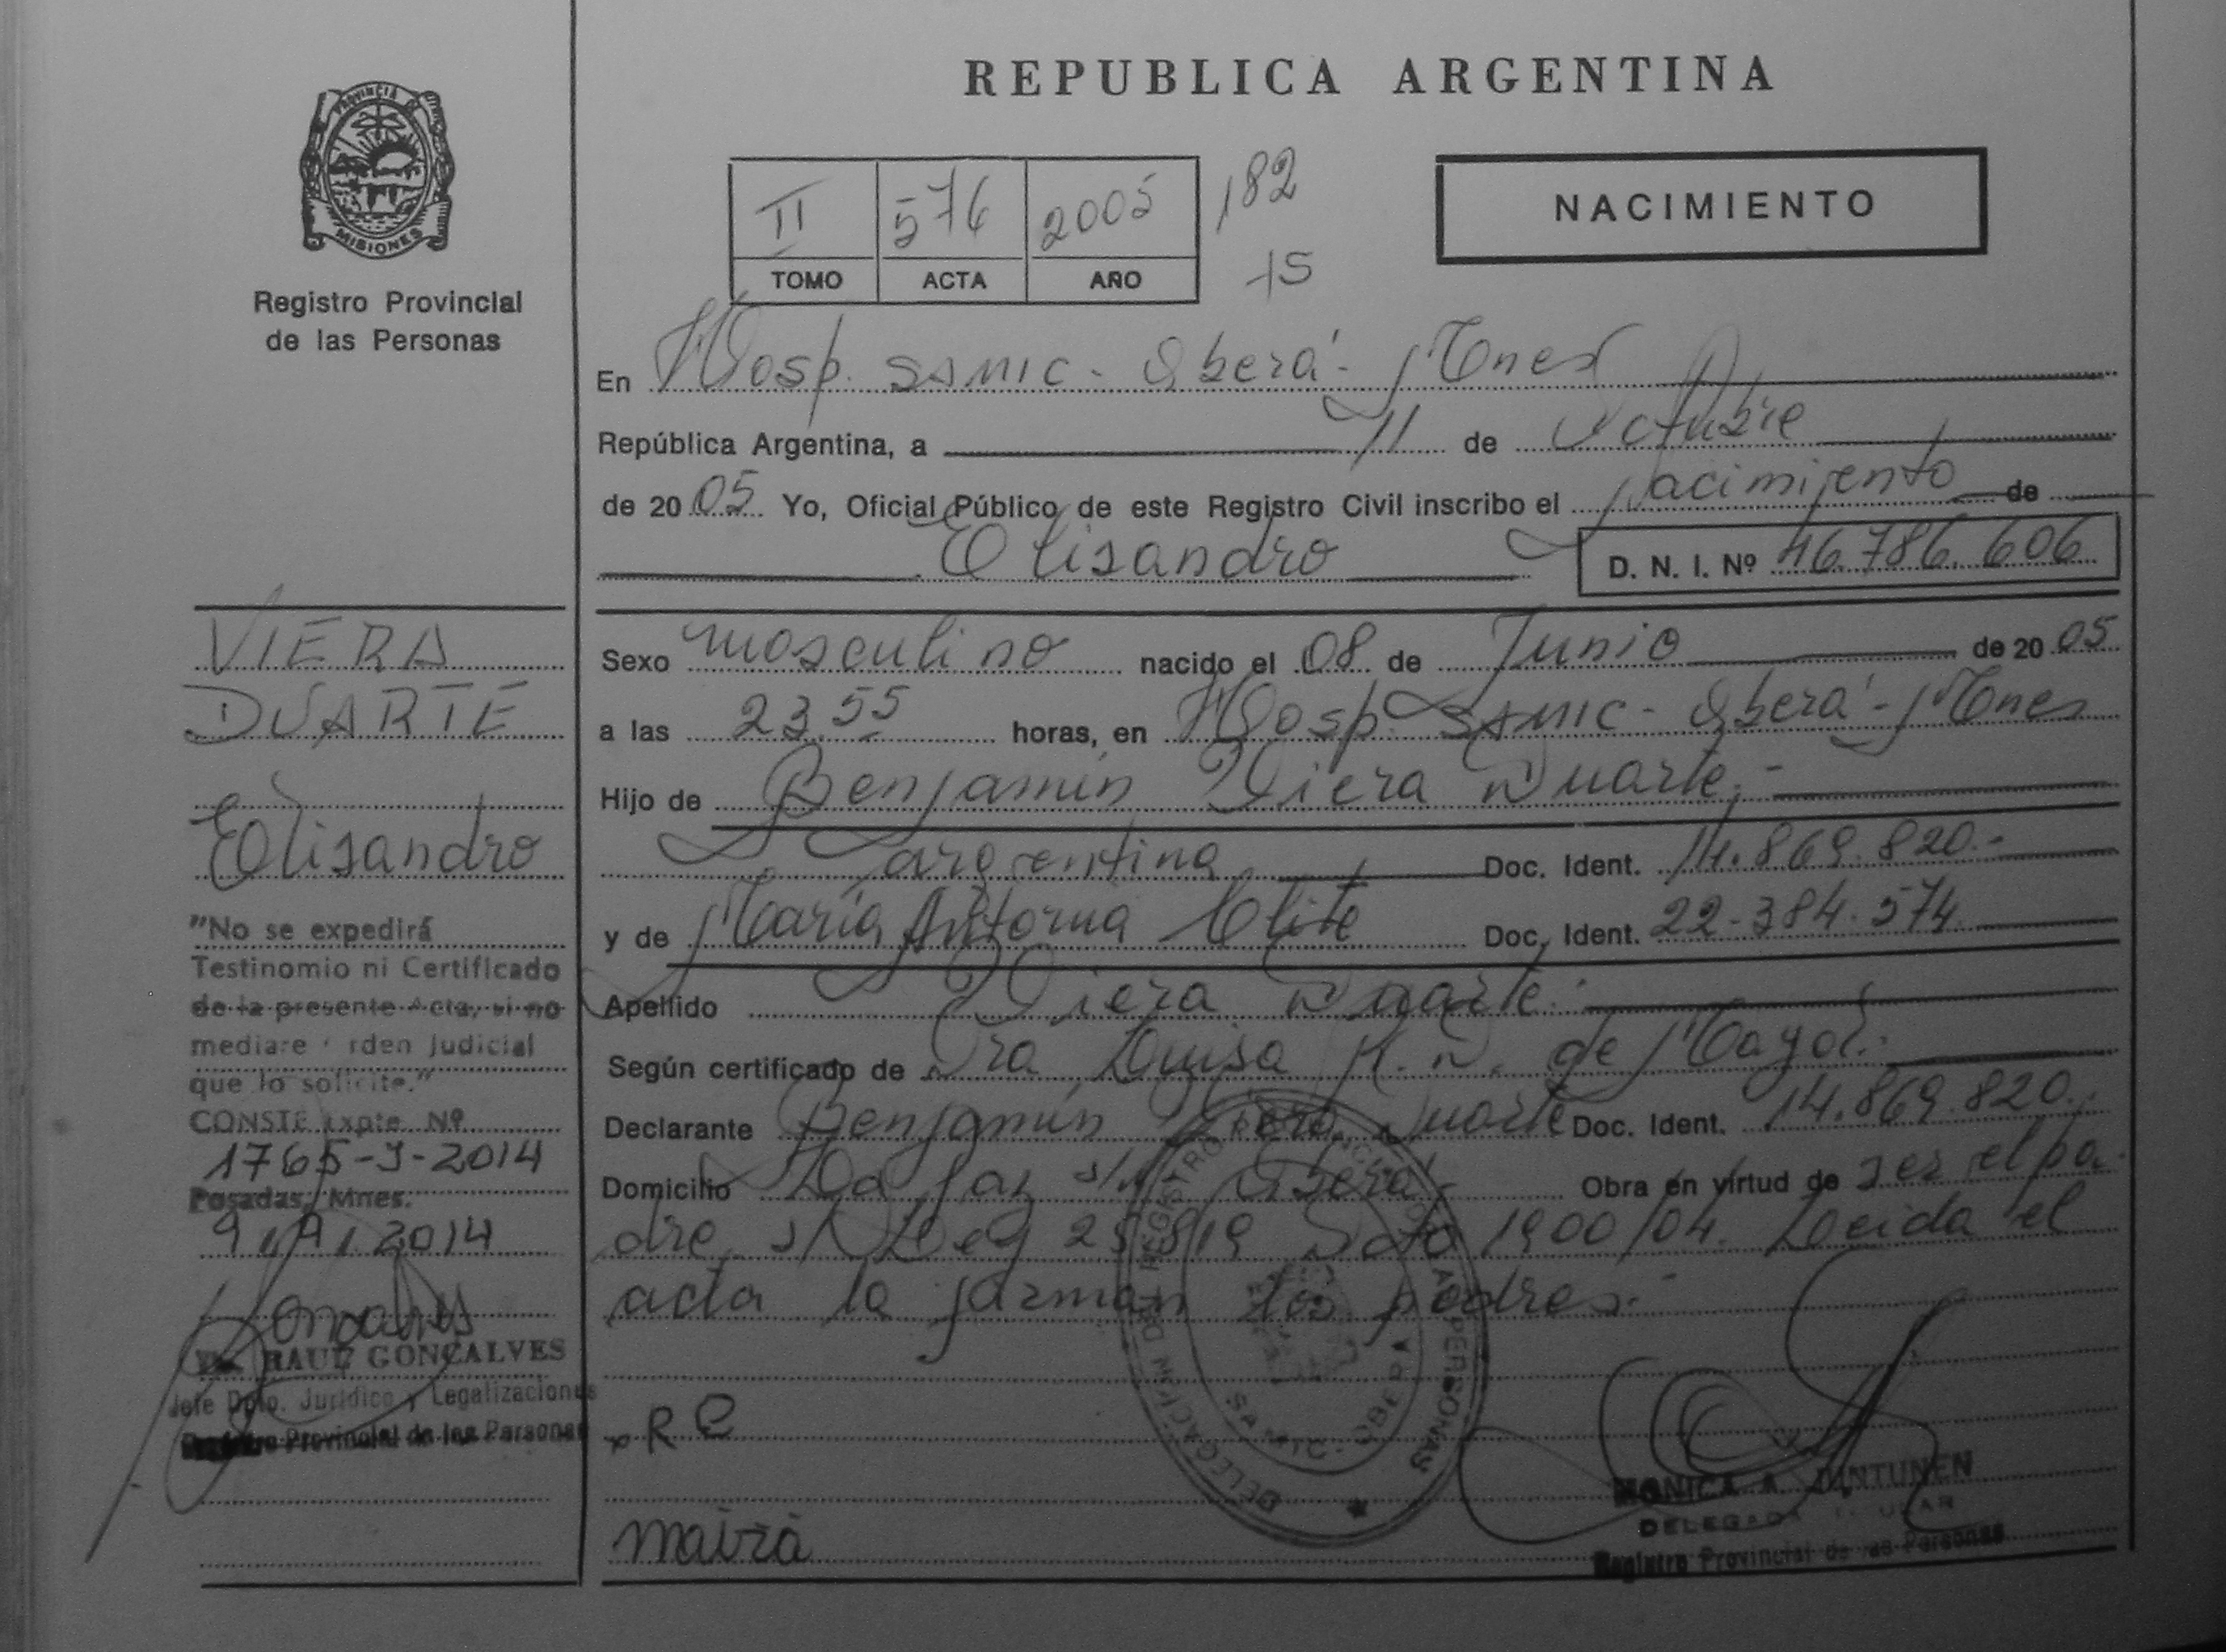 REPUBLICA ARGENTINA
PROVINCIA DE
MISIONES
Registro Provincial
de las Personas
II 576 2005 182
TOMO ACTA AÑO 15
NACIMIENTO
En Hosp. SAMIC - Oberá - Mnes
República Argentina, a 11 de Octubre
de 2005 Yo, Oficial Público de este Registro Civil inscribo el Nacimiento de
Elisandro D. N. I. Nº 46.786.606
Sexo masculino nacido el 08 de Junio de 2005
a las 23.55 horas, en Hosp. SAMIC - Oberá - Mnes
Hijo de Benjamín Viera Duarte.-
argentina Doc. Ident. 14.869.820.-
y de María Antonia Doc. Ident. 22.384.574
Apellido Viera Duarte.-
Según certificado de Dra Luisa N. de
Declarante Benjamín Viera Duarte Doc. Ident. 14.869.820.
Domicilio La Paz s/n Oberá - Obra en virtud de ser el pa-
dre, s/ Leg 25819 Dto 1900/04. Leida el
acta la firman los padres.-
R
maira
VIERA
DUARTE
Elisandro
"No se expedirá
Testinomio ni Certificado
de la presente Acta, si no
mediare orden Judicial
que lo solicite."
CONSTE Expte. Nº
1765-J-2014
Posadas, Mnes.
9/9/2014
RAUL GONÇALVES
Jefe Dpto. Jurídico y Legalizaciones
Registro Provincial de las Personas
DELEGACION DEL REGISTRO PROVINCIAL DE LAS PERSONAS
SAMIC - OBERA
MONICA A. DINTUNEN
DELEGADA TITULAR
Registro Provincial de las Personas